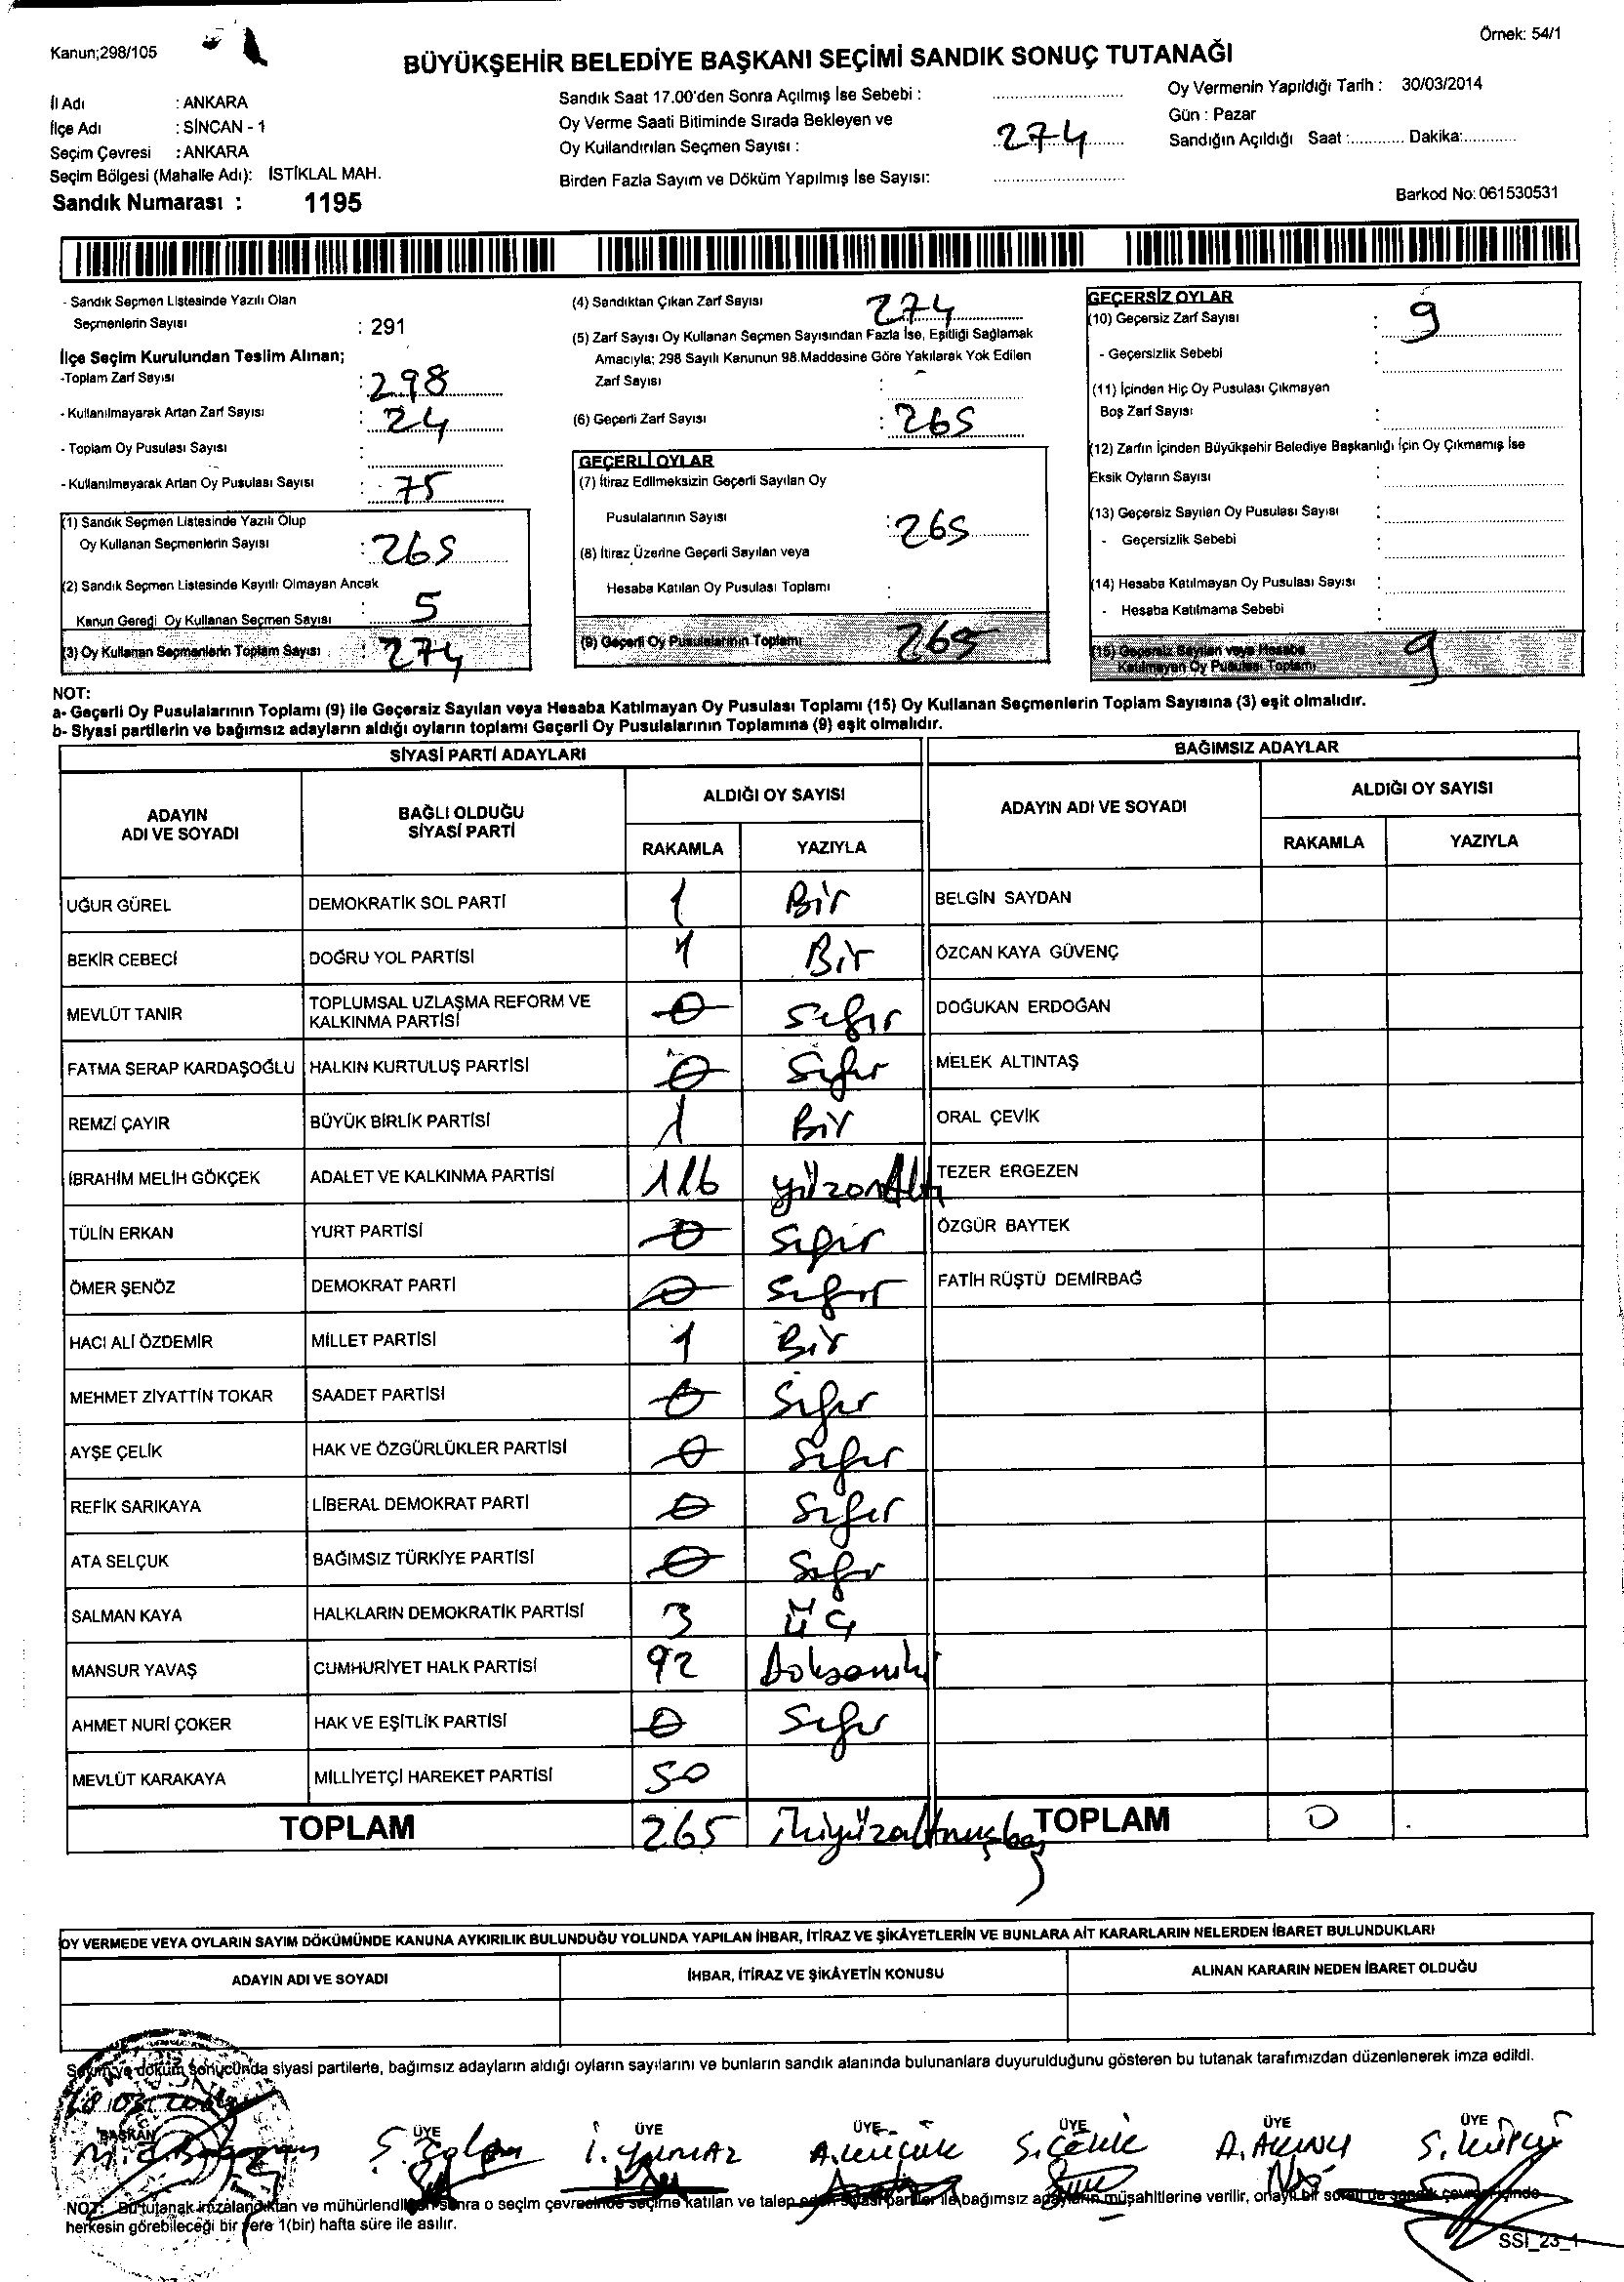 Kanun;298/105
Örnek: 54/1
BÜYÜKŞEHİR BELEDİYE BAŞKANI SEÇİMİ SANDIK SONUÇ TUTANAĞI
İl Adı : ANKARA
İlçe Adı : SİNCAN - 1
Seçim Çevresi : ANKARA
Seçim Bölgesi (Mahalle Adı): İSTİKLAL MAH.
Sandık Numarası : 1195
Sandık Saat 17.00'den Sonra Açılmış İse Sebebi :
Oy Verme Saati Bitiminde Sırada Bekleyen ve
Oy Kullandırılan Seçmen Sayısı : 274
Birden Fazla Sayım ve Döküm Yapılmış İse Sayısı:
Oy Vermenin Yapıldığı Tarih : 30/03/2014
Gün : Pazar
Sandığın Açıldığı Saat :............ Dakika:............
Barkod No: 061530531
- Sandık Seçmen Listesinde Yazılı Olan
Seçmenlerin Sayısı : 291
İlçe Seçim Kurulundan Teslim Alınan;
-Toplam Zarf Sayısı : 298
- Kullanılmayarak Artan Zarf Sayısı : 24
- Toplam Oy Pusulası Sayısı :
- Kullanılmayarak Artan Oy Pusulası Sayısı : 75
(1) Sandık Seçmen Listesinde Yazılı Olup
Oy Kullanan Seçmenlerin Sayısı : 265
(2) Sandık Seçmen Listesinde Kayıtlı Olmayan Ancak
Kanun Gereği Oy Kullanan Seçmen Sayısı : 5
(3) Oy Kullanan Seçmenlerin Toplam Sayısı : 274
(4) Sandıktan Çıkan Zarf Sayısı 274
(5) Zarf Sayısı Oy Kullanan Seçmen Sayısından Fazla İse, Eşitliği Sağlamak
Amacıyla; 298 Sayılı Kanunun 98.Maddesine Göre Yakılarak Yok Edilen
Zarf Sayısı : -
(6) Geçerli Zarf Sayısı : 265
GEÇERLİ OYLAR
(7) İtiraz Edilmeksizin Geçerli Sayılan Oy
Pusulalarının Sayısı : 265
(8) İtiraz Üzerine Geçerli Sayılan veya
Hesaba Katılan Oy Pusulası Toplamı :
(9) Geçerli Oy Pusulalarının Toplamı 265
GEÇERSİZ OYLAR
(10) Geçersiz Zarf Sayısı : 9
- Geçersizlik Sebebi :
(11) İçinden Hiç Oy Pusulası Çıkmayan
Boş Zarf Sayısı :
(12) Zarfın İçinden Büyükşehir Belediye Başkanlığı İçin Oy Çıkmamış İse
Eksik Oyların Sayısı :
(13) Geçersiz Sayılan Oy Pusulası Sayısı :
- Geçersizlik Sebebi :
(14) Hesaba Katılmayan Oy Pusulası Sayısı :
- Hesaba Katılmama Sebebi :
(15) Geçersiz Sayılan veya Hesaba
Katılmayan Oy Pusulası Toplamı 9
NOT:
a- Geçerli Oy Pusulalarının Toplamı (9) ile Geçersiz Sayılan veya Hesaba Katılmayan Oy Pusulası Toplamı (15) Oy Kullanan Seçmenlerin Toplam Sayısına (3) eşit olmalıdır.
b- Siyasi partilerin ve bağımsız adayların aldığı oyların toplamı Geçerli Oy Pusulalarının Toplamına (9) eşit olmalıdır.
SİYASİ PARTİ ADAYLARI
ADAYIN ADI VE SOYADI
BAĞLI OLDUĞU SİYASİ PARTİ
ALDIĞI OY SAYISI
RAKAMLA YAZIYLA
UĞUR GÜREL DEMOKRATİK SOL PARTİ 1 Bir
BEKİR CEBECİ DOĞRU YOL PARTİSİ 1 Bir
MEVLÜT TANIR TOPLUMSAL UZLAŞMA REFORM VE KALKINMA PARTİSİ 0 Sıfır
FATMA SERAP KARDAŞOĞLU HALKIN KURTULUŞ PARTİSİ 0 Sıfır
REMZİ ÇAYIR BÜYÜK BİRLİK PARTİSİ 1 Bir
İBRAHİM MELİH GÖKÇEK ADALET VE KALKINMA PARTİSİ 116 yüzonAltı
TÜLİN ERKAN YURT PARTİSİ 0 Sıfır
ÖMER ŞENÖZ DEMOKRAT PARTİ 0 Sıfır
HACI ALİ ÖZDEMİR MİLLET PARTİSİ 1 Bir
MEHMET ZİYATTİN TOKAR SAADET PARTİSİ 0 Sıfır
AYŞE ÇELİK HAK VE ÖZGÜRLÜKLER PARTİSİ 0 Sıfır
REFİK SARIKAYA LİBERAL DEMOKRAT PARTİ 0 Sıfır
ATA SELÇUK BAĞIMSIZ TÜRKİYE PARTİSİ 0 Sıfır
SALMAN KAYA HALKLARIN DEMOKRATİK PARTİSİ 3 üç
MANSUR YAVAŞ CUMHURİYET HALK PARTİSİ 92 Doksaniki
AHMET NURİ ÇOKER HAK VE EŞİTLİK PARTİSİ 0 Sıfır
MEVLÜT KARAKAYA MİLLİYETÇİ HAREKET PARTİSİ 50
TOPLAM 265 İkiyüzaltmışbeş
BAĞIMSIZ ADAYLAR
ADAYIN ADI VE SOYADI
ALDIĞI OY SAYISI
RAKAMLA YAZIYLA
BELGİN SAYDAN
ÖZCAN KAYA GÜVENÇ
DOĞUKAN ERDOĞAN
MELEK ALTINTAŞ
ORAL ÇEVİK
TEZER ERGEZEN
ÖZGÜR BAYTEK
FATİH RÜŞTÜ DEMİRBAĞ
TOPLAM 0
OY VERMEDE VEYA OYLARIN SAYIM DÖKÜMÜNDE KANUNA AYKIRILIK BULUNDUĞU YOLUNDA YAPILAN İHBAR, İTİRAZ VE ŞİKÂYETLERİN VE BUNLARA AİT KARARLARIN NELERDEN İBARET BULUNDUKLARI
ADAYIN ADI VE SOYADI İHBAR, İTİRAZ VE ŞİKÂYETİN KONUSU ALINAN KARARIN NEDEN İBARET OLDUĞU
Sayım ve döküm sonucunda siyasi partilerle, bağımsız adayların aldığı oyların sayılarını ve bunların sandık alanında bulunanlara duyurulduğunu gösteren bu tutanak tarafımızdan düzenlenerek imza edildi.
BAŞKAN ÜYE ÜYE ÜYE ÜYE ÜYE ÜYE
İ. YILMAZ A. küçük S. Çelik
NOT: Bu tutanak imzalandıktan ve mühürlendikten sonra o seçim çevresinde seçime katılan ve talep eden siyasi partiler ile bağımsız adayların müşahitlerine verilir, onaylı bir sureti de sandık çevresi içinde
herkesin görebileceği bir yere 1(bir) hafta süre ile asılır.
SSİ_23_1